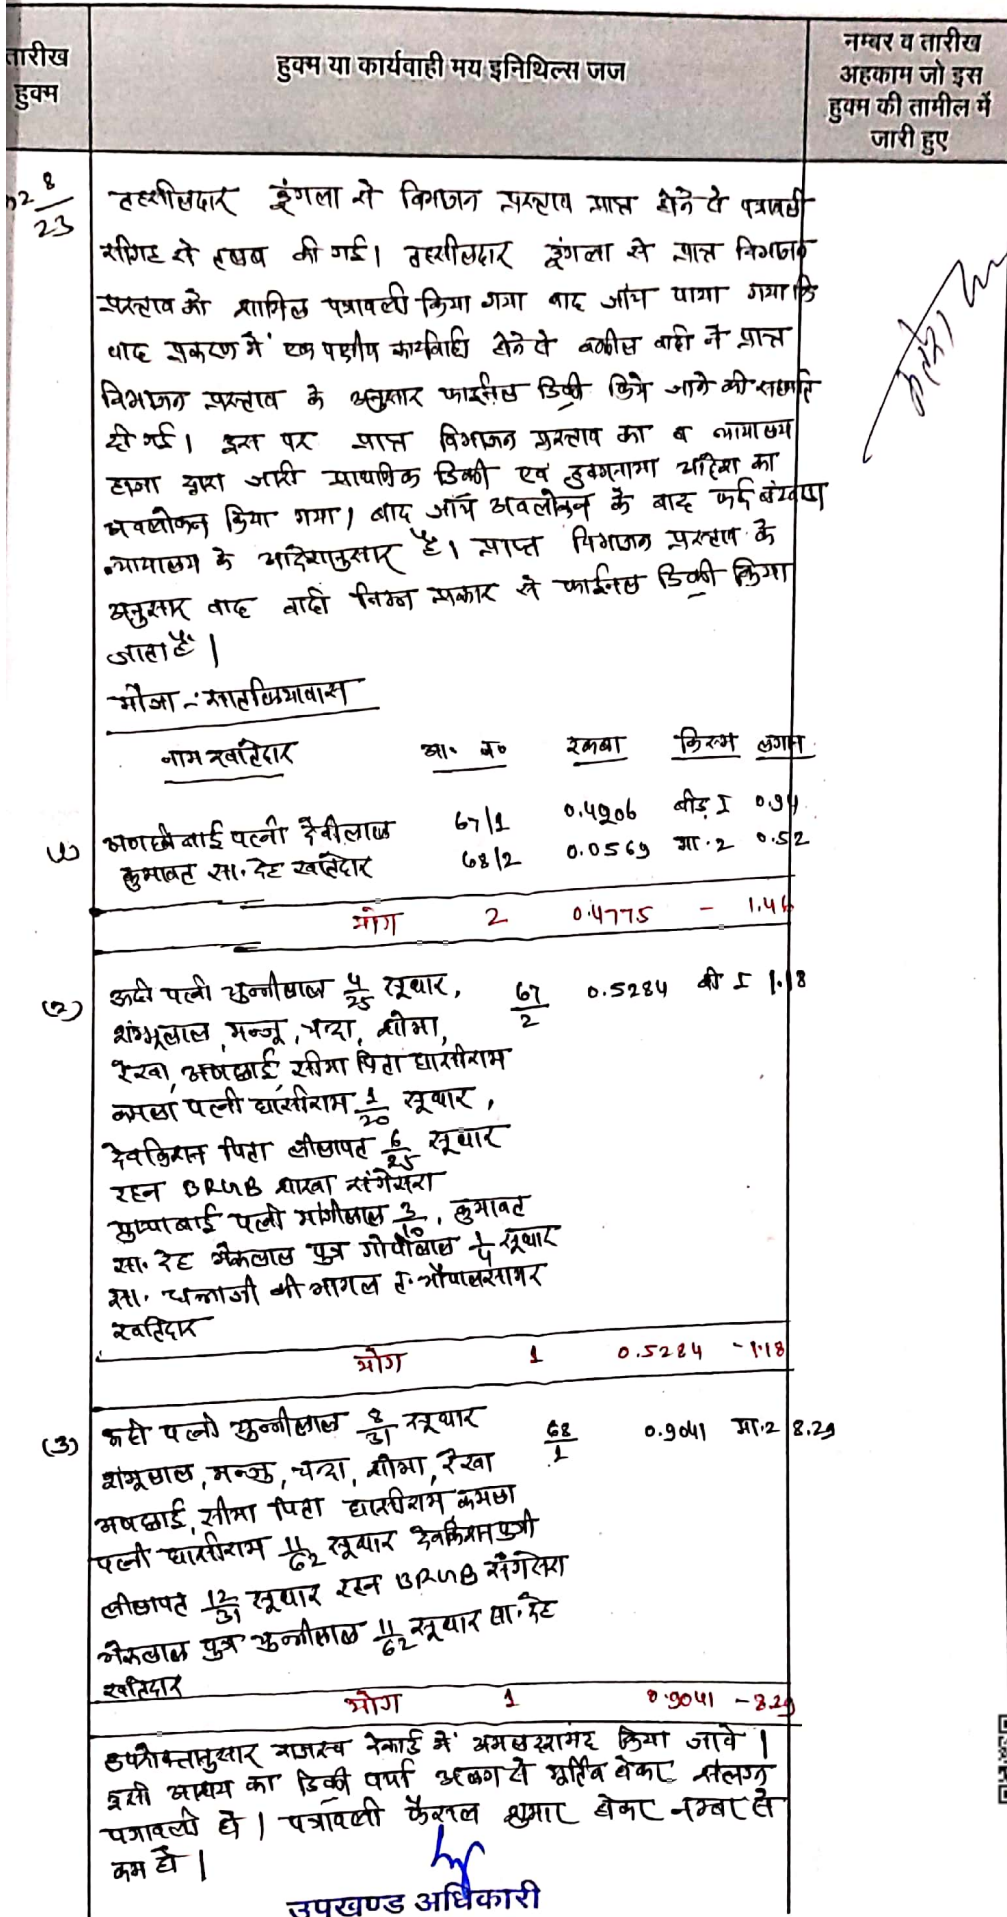 तारीख
हुक्म
हुक्म या कार्यवाही मय इनिथिल्स जज
नम्बर व तारीख
अहकाम जो इस
हुक्म की तामील में
जारी हुए
8
23
तहसीलदार डूंगला से विभाजन प्रस्ताव प्राप्त होने से पत्रावली
सीगह से तलब की गई। तहसीलदार डूंगला से प्राप्त विभाजन
प्रस्ताव को शामिल पत्रावली किया गया बाद जांच पाया गया कि
वाद प्रकरण में एक पक्षीय कार्यवाही होने से वकील वादी ने प्राप्त
विभाजन प्रस्ताव के अनुसार फाईनल डिक्री किये जाने की सहमति
दी गई। इस पर प्राप्त विभाजन प्रस्ताव का व न्यायालय
द्वारा जारी प्राथमिक डिक्री एवं हुक्मनामा आदेश का
अवलोकन किया गया। बाद जांच अवलोकन के बाद
न्यायालय के आदेशानुसार है। प्राप्त विभाजन प्रस्ताव के
अनुसार वाद वादी निम्न प्रकार से फाईनल डिक्री किया
जाता है।
मौजा :-
नाम खातेदार आ. न. रकबा किस्म लगान
(1) पत्नी देवीलाल 67/1 0.4206 बीड़ I 0.94
कुमावत सा. देह खातेदार 68/2 0.0569 मा.2 0.52
योग 2 0.4775 - 1.46
(2) पत्नी चुन्नीलाल 4/25 सुथार, 67/2 0.5284 बी I 1.18
शंभूलाल, मन्जू, चन्दा, शोभा,
रेखा, अणछाई, सीमा पिता घासीराम
कमला पत्नी घासीराम 1/20 सुथार,
देवकिशन पिता 6/25 सुथार
रहन BRGB शाखा संगेसरा
पुष्पाबाई पत्नी मांगीलाल 3/10, कुमावत
सा. देह भैरूलाल पुत्र गोपीलाल 1/4 सुथार
सा. की भागल त. भोपालसागर
खातेदार
योग 1 0.5284 - 1.18
(3) पत्नी चुन्नीलाल 8/31 सुथार 68/1 0.9041 मा.2 8.29
शंभूलाल, मन्जु, चन्दा, शोभा, रेखा
अणछाई, सीमा पिता घासीराम, कमला
पत्नी घासीराम 11/62 सुथार देवकिशन
12/31 सुथार रहन BRGB संगेसरा
भैरूलाल पुत्र चुन्नीलाल 11/62 सुथार सा. देह
खातेदार
योग 1 0.9041 - 8.29
उपरोक्तानुसार राजस्व रेकार्ड में अमलदरामद किया जावे।
इसी आशय का डिक्री पर्चा अलग से मुर्तिब होकर संलग्न
पत्रावली हो। पत्रावली फैसल शुमार होकर नम्बर से
कम हो।
उपखण्ड अधिकारी